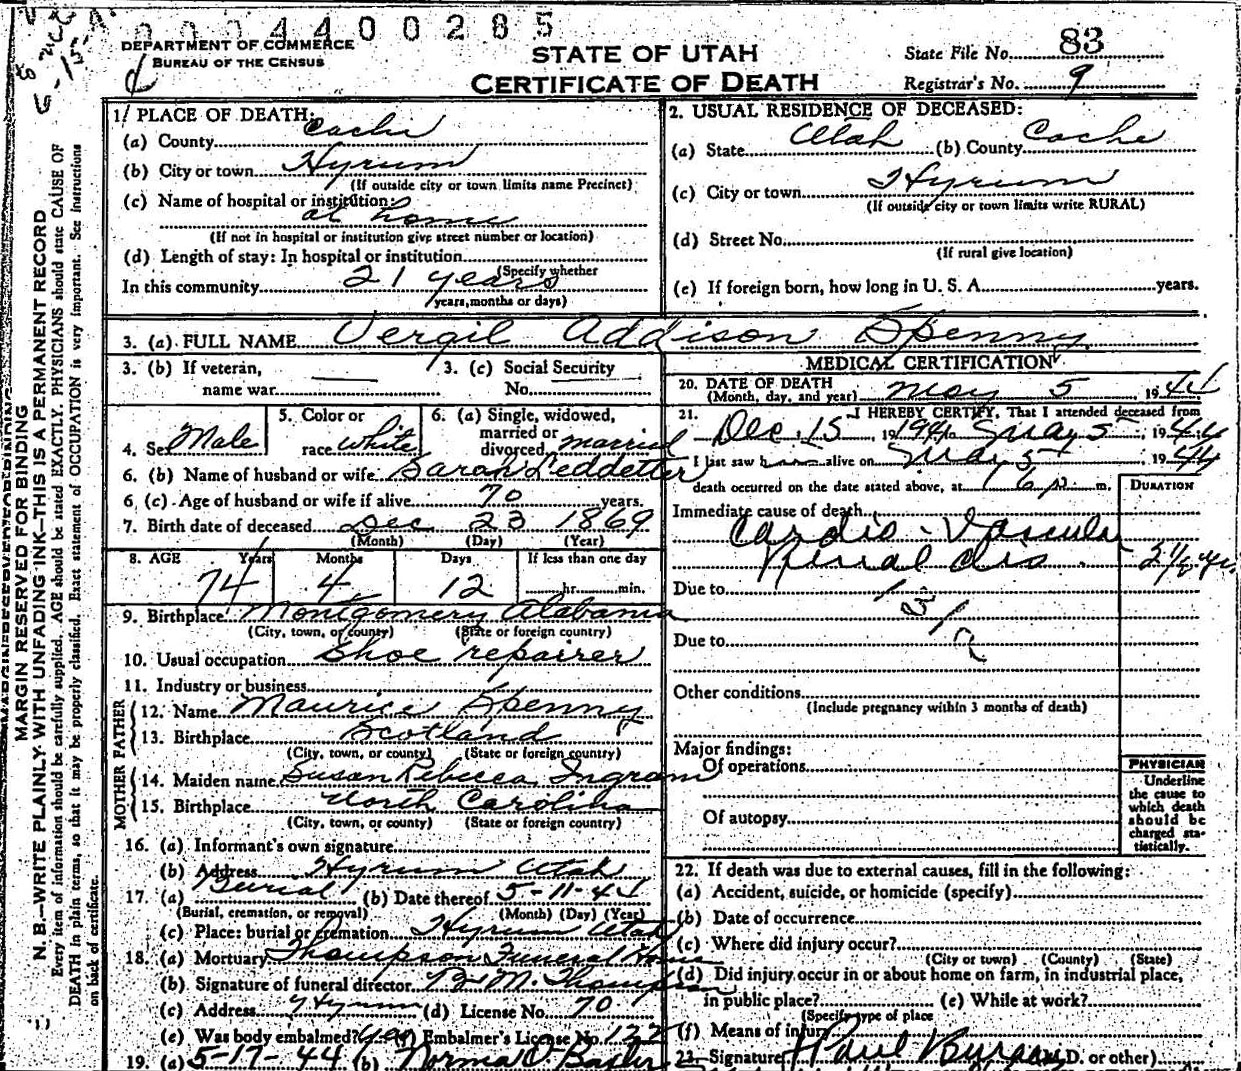 0004400285
DEPARTMENT OF COMMERCE
BUREAU OF THE CENSUS
STATE OF UTAH
CERTIFICATE OF DEATH
State File No. 83
Registrar's No. 9
MARGIN RESERVED FOR BINDING
N. B.—WRITE PLAINLY WITH UNFADING INK—THIS IS A PERMANENT RECORD
Every item of information should be carefully supplied. AGE should be stated EXACTLY. PHYSICIANS should state CAUSE OF
DEATH in plain terms, so that it may be properly classified. Exact statement of OCCUPATION is very important. See instructions
on back of certificate.
1. PLACE OF DEATH:
(a) County Cache
(b) City or town Hyrum
(If outside city or town limits name Precinct)
(c) Name of hospital or institution:
at home
(If not in hospital or institution give street number or location)
(d) Length of stay: In hospital or institution
(Specify whether
In this community 21 years
years, months or days)
2. USUAL RESIDENCE OF DECEASED:
(a) State Utah (b) County Cache
(c) City or town Hyrum
(If outside city or town limits write RURAL)
(d) Street No.
(If rural give location)
(e) If foreign born, how long in U. S. A. years.
3. (a) FULL NAME Vergil Addison Spenny
3. (b) If veteran,
name war
3. (c) Social Security
No.
4. Sex Male
5. Color or
race white
6. (a) Single, widowed,
married or
divorced married
6. (b) Name of husband or wife Sarah Leddetter
6. (c) Age of husband or wife if alive 70 years.
7. Birth date of deceased Dec 23 1869
(Month) (Day) (Year)
8. AGE Years Months Days If less than one day
74 4 12 hr. min.
9. Birthplace Montgomery Alabama
(City, town, or county) (State or foreign country)
10. Usual occupation Shoe repairer
11. Industry or business
FATHER
12. Name Maurice Spenny
13. Birthplace Scotland
(City, town, or county) (State or foreign country)
MOTHER
14. Maiden name Susan Rebecca Ingram
15. Birthplace North Carolina
(City, town, or county) (State or foreign country)
16. (a) Informant's own signature
(b) Address Hyrum Utah
17. (a) Burial (b) Date thereof 5-11-44
(Burial, cremation, or removal) (Month) (Day) (Year)
(c) Place: burial or cremation Hyrum Utah
18. (a) Mortuary Thompson Funeral Home
(b) Signature of funeral director M. Thompson
(c) Address Hyrum (d) License No. 70
(e) Was body embalmed? yes (f) Embalmer's License No. 122
19. (a) 5-17-44 (b) Norma
MEDICAL CERTIFICATION
20. DATE OF DEATH
(Month, day, and year) May 5, 1944
21. I HEREBY CERTIFY, That I attended deceased from
Dec. 15, 1941 to May 5, 1944
I last saw him alive on May 5, 1944
death occurred on the date stated above, at 6 p. m.
DURATION
Immediate cause of death
Cardio-Vascular
Renal dis. 2 1/2 yr.
Due to
131 a
Due to
Other conditions
(Include pregnancy within 3 months of death)
Major findings:
Of operations
Of autopsy
PHYSICIAN
Underline
the cause to
which death
should be
charged sta-
tistically.
22. If death was due to external causes, fill in the following:
(a) Accident, suicide, or homicide (specify)
(b) Date of occurrence
(c) Where did injury occur?
(City or town) (County) (State)
(d) Did injury occur in or about home on farm, in industrial place,
in public place? (e) While at work?
(Specify type of place
(f) Means of injury
23. Signature Paul (M.D. or other)